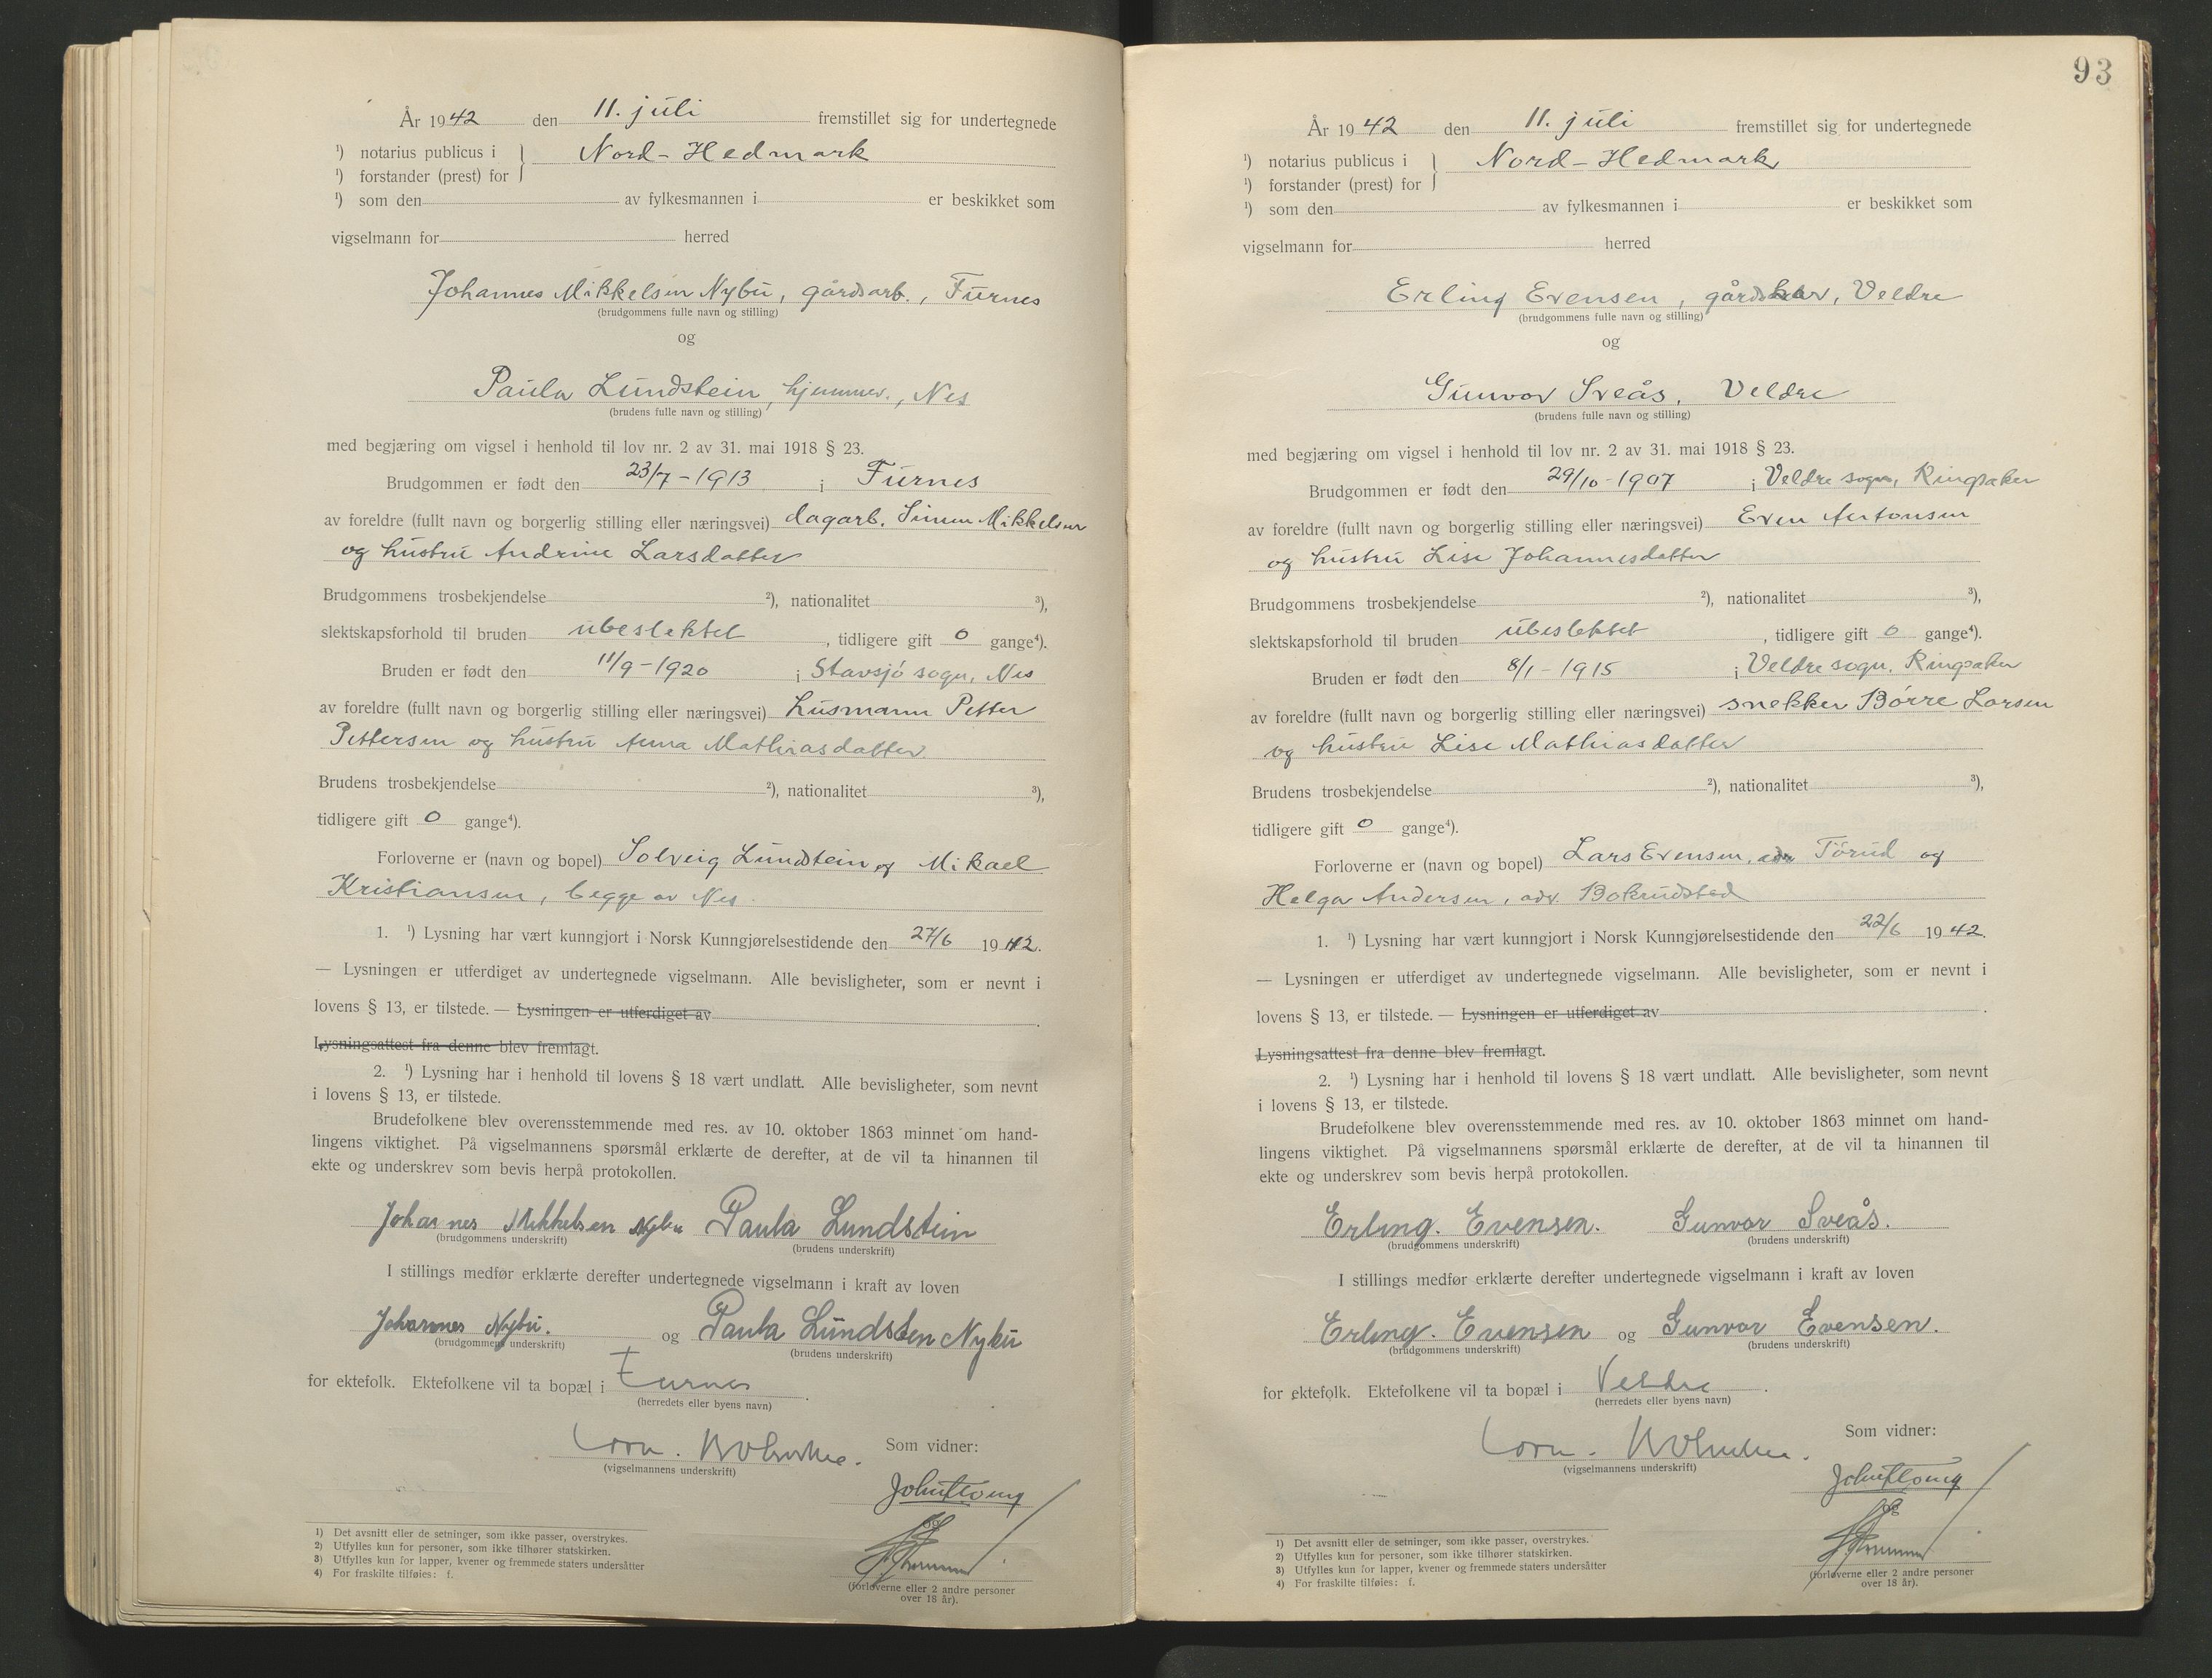 År 1942 den 11. juli fremstillet sig for undertegnede
¹) notarius publicus i } Nord-Hedmark
¹) forstander (prest) for
¹) som den av fylkesmannen i er beskikket som
vigselmann for herred
Johannes Mikkelsen Nybu, gårdsarb., Furnes
(brudgommens fulle navn og stilling)
og
Paula Lundstein, hjemmev., Nes
(brudens fulle navn og stilling)
med begjæring om vigsel i henhold til lov nr. 2 av 31. mai 1918 § 23.
Brudgommen er født den 23/7-1913 i Furnes
av foreldre (fullt navn og borgerlig stilling eller næringsvei) dagarb. Simen Mikkelsen
og hustru Andrine Larsdatter
Brudgommens trosbekjendelse ²), nationalitet ³),
slektskapsforhold til bruden ubeslektet, tidligere gift 0 gange⁴).
Bruden er født den 11/9-1920 i Stavsjø sogn, Nes
av foreldre (fullt navn og borgerlig stilling eller næringsvei) husmann Petter
Pettersen og hustru Anna Mathiasdatter.
Brudens trosbekjendelse ²), nationalitet ³),
tidligere gift 0 gange⁴).
Forloverne er (navn og bopel) Solveig Lundstein og Mikael
Kristiansen, begge av Nes.
1. ¹) Lysning har vært kunngjort i Norsk Kunngjørelsestidende den 27/6 1942.
— Lysningen er utferdiget av undertegnede vigselmann. Alle bevisligheter, som er nevnt i
lovens § 13, er tilstede. — Lysningen er utferdiget av
Lysningsattest fra denne blev fremlagt.
2. ¹) Lysning har i henhold til lovens § 18 vært undlatt. Alle bevisligheter, som nevnt
i lovens § 13, er tilstede.
Brudefolkene blev overensstemmende med res. av 10. oktober 1863 minnet om hand-
lingens viktighet. På vigselmannens spørsmål erklærte de derefter, at de vil ta hinannen til
ekte og underskrev som bevis herpå protokollen.
Johannes Mikkelsen Nybu Paula Lundstein
(brudgommens underskrift) (brudens underskrift)
I stillings medfør erklærte derefter undertegnede vigselmann i kraft av loven
Johannes Nybu. og Paula Lundsten Nybu
(brudgommens underskrift) (brudens underskrift)
for ektefolk. Ektefolkene vil ta bopæl i Furnes.
(herredets eller byens navn)
(vigselmannens underskrift)
Som vidner:
og
(forloverne eller 2 andre personer
over 18 år).
1) Det avsnitt eller de setninger, som ikke passer, overstrykes.
2) Utfylles kun for personer, som ikke tilhører statskirken.
3) Utfylles kun for lapper, kvener og fremmede staters undersåtter
4) For fraskilte tilføies: f.
93
År 1942 den 11. juli fremstillet sig for undertegnede
¹) notarius publicus i } Nord-Hedmark
¹) forstander (prest) for
¹) som den av fylkesmannen i er beskikket som
vigselmann for herred
Erling Evensen, gårdskar, Veldre
(brudgommens fulle navn og stilling)
og
Gunvor Sveås, Veldre
(brudens fulle navn og stilling)
med begjæring om vigsel i henhold til lov nr. 2 av 31. mai 1918 § 23.
Brudgommen er født den 29/10-1907 i Veldre sogn, Ringsaker
av foreldre (fullt navn og borgerlig stilling eller næringsvei) Even Antonsen
og hustru Lise Johannesdatter
Brudgommens trosbekjendelse ²), nationalitet ³),
slektskapsforhold til bruden ubeslektet, tidligere gift 0 gange⁴).
Bruden er født den 8/1-1915 i Veldre sogn, Ringsaker
av foreldre (fullt navn og borgerlig stilling eller næringsvei) snekker Børre Larsen
og hustru Lise Mathiasdatter
Brudens trosbekjendelse ²), nationalitet ³),
tidligere gift 0 gange⁴).
Forloverne er (navn og bopel) Lars Evensen, adr. Törud og
Helga Andersen, adr. Bokrudstad
1. ¹) Lysning har vært kunngjort i Norsk Kunngjørelsestidende den 22/6 1942.
— Lysningen er utferdiget av undertegnede vigselmann. Alle bevisligheter, som er nevnt i
lovens § 13, er tilstede. — Lysningen er utferdiget av
Lysningsattest fra denne blev fremlagt.
2. ¹) Lysning har i henhold til lovens § 18 vært undlatt. Alle bevisligheter, som nevnt
i lovens § 13, er tilstede.
Brudefolkene blev overensstemmende med res. av 10. oktober 1863 minnet om hand-
lingens viktighet. På vigselmannens spørsmål erklærte de derefter, at de vil ta hinannen til
ekte og underskrev som bevis herpå protokollen.
Erling. Evensen. Gunvor Sveås.
(brudgommens underskrift) (brudens underskrift)
I stillings medfør erklærte derefter undertegnede vigselmann i kraft av loven
Erling. Evensen og Gunvor Evensen.
(brudgommens underskrift) (brudens underskrift)
for ektefolk. Ektefolkene vil ta bopæl i Veldre.
(herredets eller byens navn)
(vigselmannens underskrift)
Som vidner:
og
(forloverne eller 2 andre personer
over 18 år).
1) Det avsnitt eller de setninger, som ikke passer, overstrykes.
2) Utfylles kun for personer, som ikke tilhører statskirken.
3) Utfylles kun for lapper, kvener og fremmede staters undersåtter
4) For fraskilte tilføies: f.